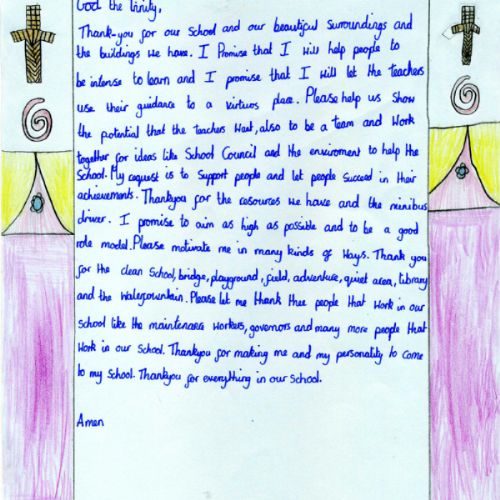 God the trinity,
Thank-you for our School and our beautiful Surroundings and
the buildings we have. I Promise that I will help people to
be intense to learn and I promise that I will let the teachers
use their guidance to a virtuos place. Please help us Show
the potential that the teachers want, also to be a team and Work
together for ideas like School Council and the enviroment to help the
School. My request is to Support people and let people Succeed in their
achievements. Thankyou for the resources We have and the minibus
driver. I promise to aim as high as possible and to be a good
role model. Please motivate me in many kinds of Ways. Thank you
for the clean School, bridge, playground, field, adventure, quiet area, library
and the Waterfountain. Please let me thank thee people that work in our
School like the maintenance workers, governors and many more people that
Work in our School. Thankyou for making me and my personality to come
to my School. Thankyou for everything in our School.
Amen